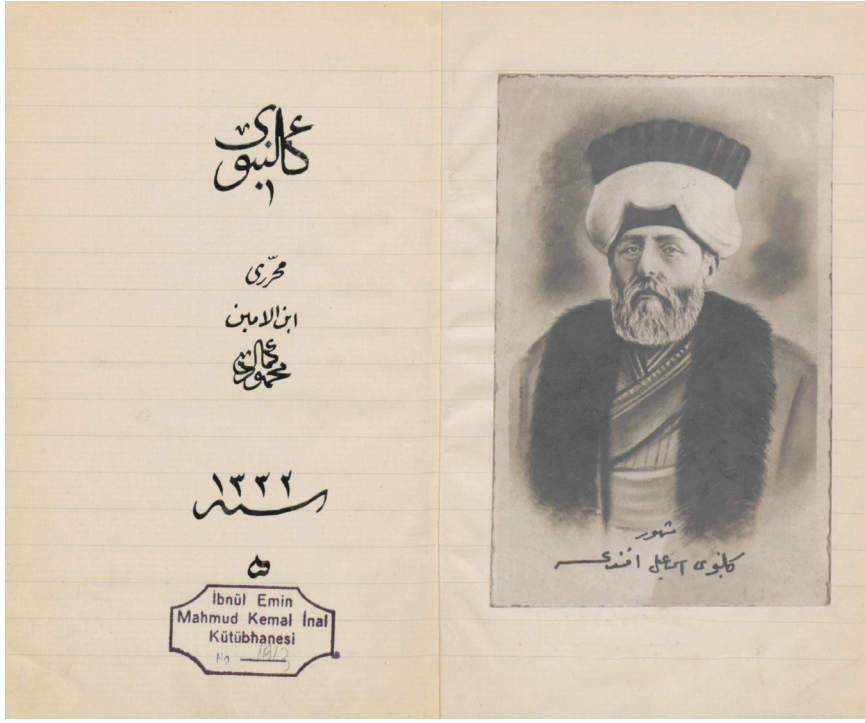 كلنبوى
١
محرّرى
ابن الامين
محمود كمال
سنه ١٣٣٢
İbnül Emin
Mahmud Kemal İnal
Kütübhanesi
No
مشهور
كلنبوى اسماعيل افندى